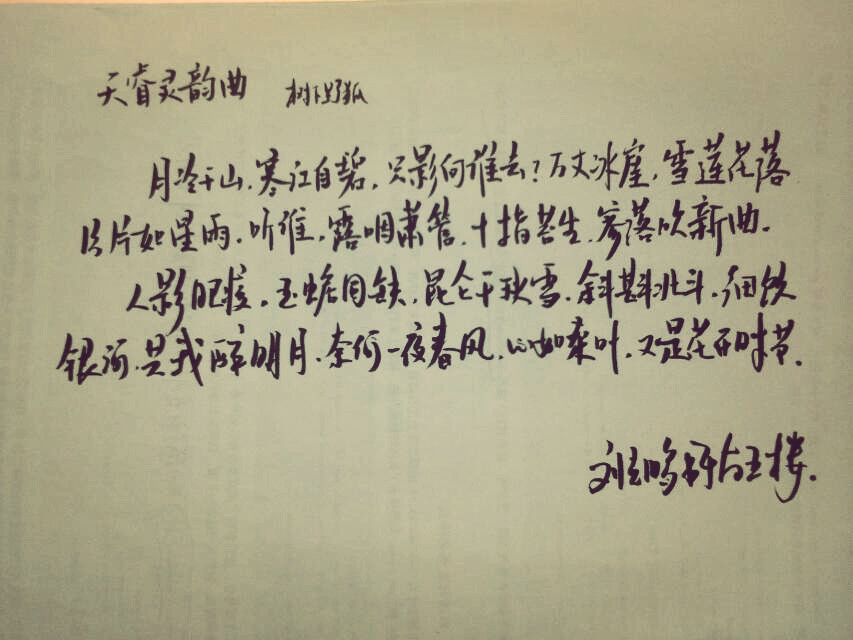 天睿灵韵曲 树下野狐
月冷千山，寒江自碧，只影向谁去？万丈冰崖，雪莲花落
片片如星雨。听谁，露咽萧管，十指苔生，寥落吹新曲。
人影肥瘦，玉蟾圆缺，昆仑千秋雪。斜斟北斗，细饮
银河，共我醉明月。奈何一夜春风，心如桑叶，又是花开时节。